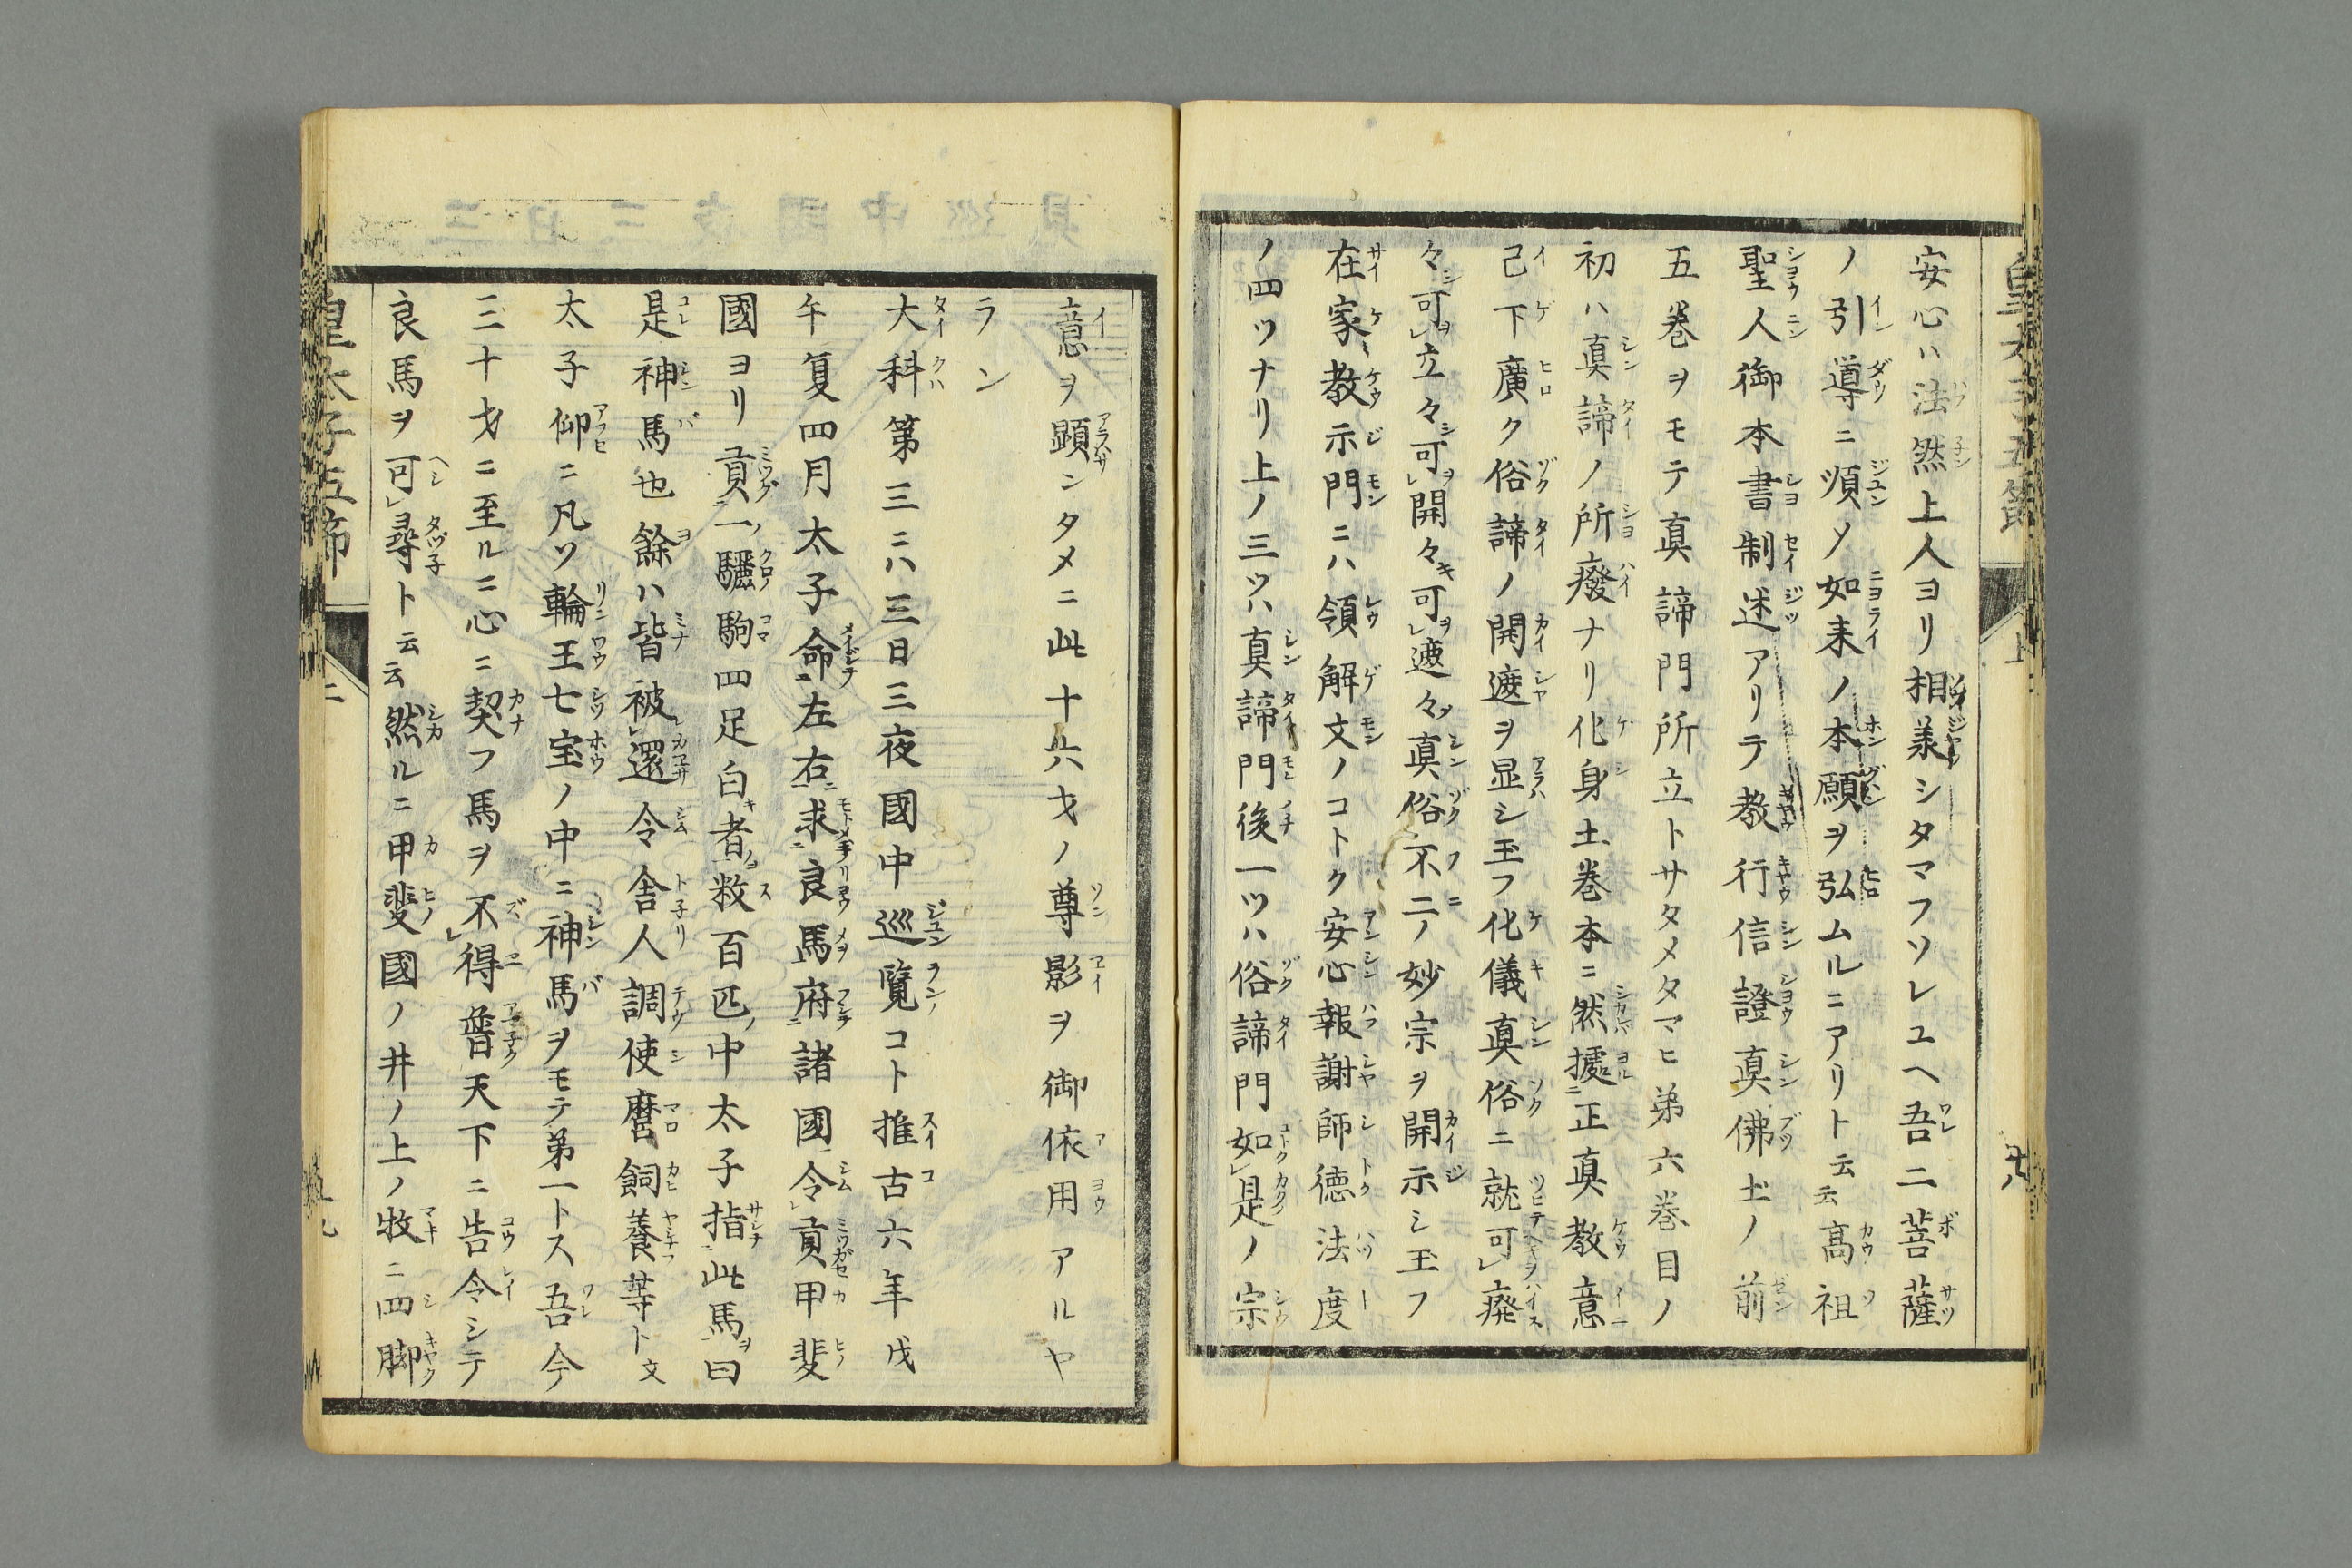 安心ハ法然上人ヨリ相羕シタマフソレユヘ吾二菩薩
ノ引導ニ順〆如来ノ本願ヲ弘ムルニアリト云云高祖
聖人御本書制述アリテ教行信證真佛土ノ前
五巻ヲモテ真諦門所立トサタメタマヒ第六巻目ノ
初ハ真諦ノ所癈ナリ化身土巻本ニ然㨿正真教意
已下廣ク俗諦ノ開遮ヲ显シ玉フ化儀真俗ニ就可廃
々可立々可開々可遮々真俗不二ノ妙宗ヲ開示シ玉フ
在家教示門ニハ領解文ノコトク安心報謝師徳法度
ノ四ツナリ上ノ三ツハ真諦門後一ツハ俗諦門如是ノ宗
意ヲ顕ンタメニ此十六才ノ尊影ヲ御依用アルヤ
ラン
大科第三ニハ三日三夜國中巡覧コト推古六年戊
午夏四月太子命左右求良馬府諸國令貢甲斐
國ヨリ貢一驪駒四足白者数百匹中太子指此馬曰
是神馬也餘ハ皆被還令舎人調使麿飼養等ト文
太子仰ニ凡ソ輪王七宝ノ中ニ神馬ヲモテ第一トス吾今
三十才ニ至ルニ心ニ契フ馬ヲ不得普天下ニ告令シテ
良馬ヲ可尋ト云云然ルニ甲斐國ノ井ノ上ノ牧ニ四脚
皇太子五節
上
二